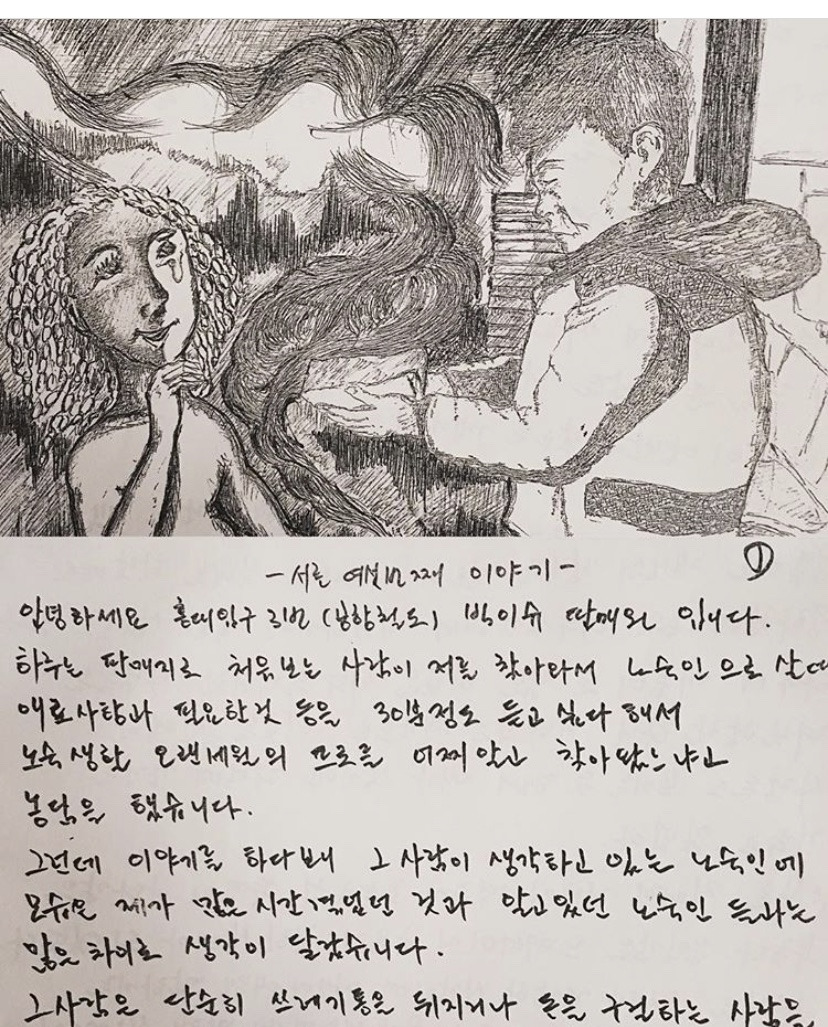 ①
- 서른 여섯번째 이야기 -
안녕하세요 홍대입구 3번 (공항철도) 빅이슈 판매원 입니다.
하루는 판매지로 처음보는 사람이 저를 찾아와서 노숙인으로 살며
애로사항과 필요한것 등을 30분정도 듣고 싶다 해서
노숙생활 오랜세월의 프로를 어찌알고 찾아왔느냐고
농담을 했습니다.
그런데 이야기를 하다보니 그 사람이 생각하고 있는 노숙인에
모습은 제가 많은 시간 겪었던 것과 알고있던 노숙인 들과는
많은 차이로 생각이 달랐습니다.
그사람은 단순히 쓰레기통을 뒤지거나 돈을 구걸하는 사람을